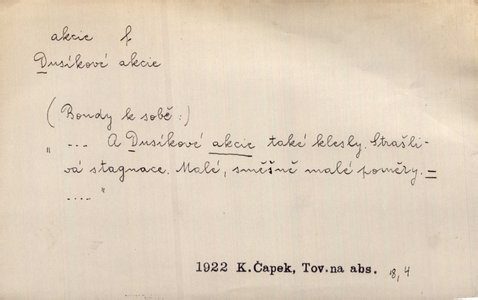 akcie f
Dusíkové akcie
(Bondy k sobě:)
„ ... A Dusíkové akcie také klesly. Strašli-
vá stagnace. Malé, směšně malé poměry. =
.... "
1922 K.Čapek, Tov.na abs. 8,4